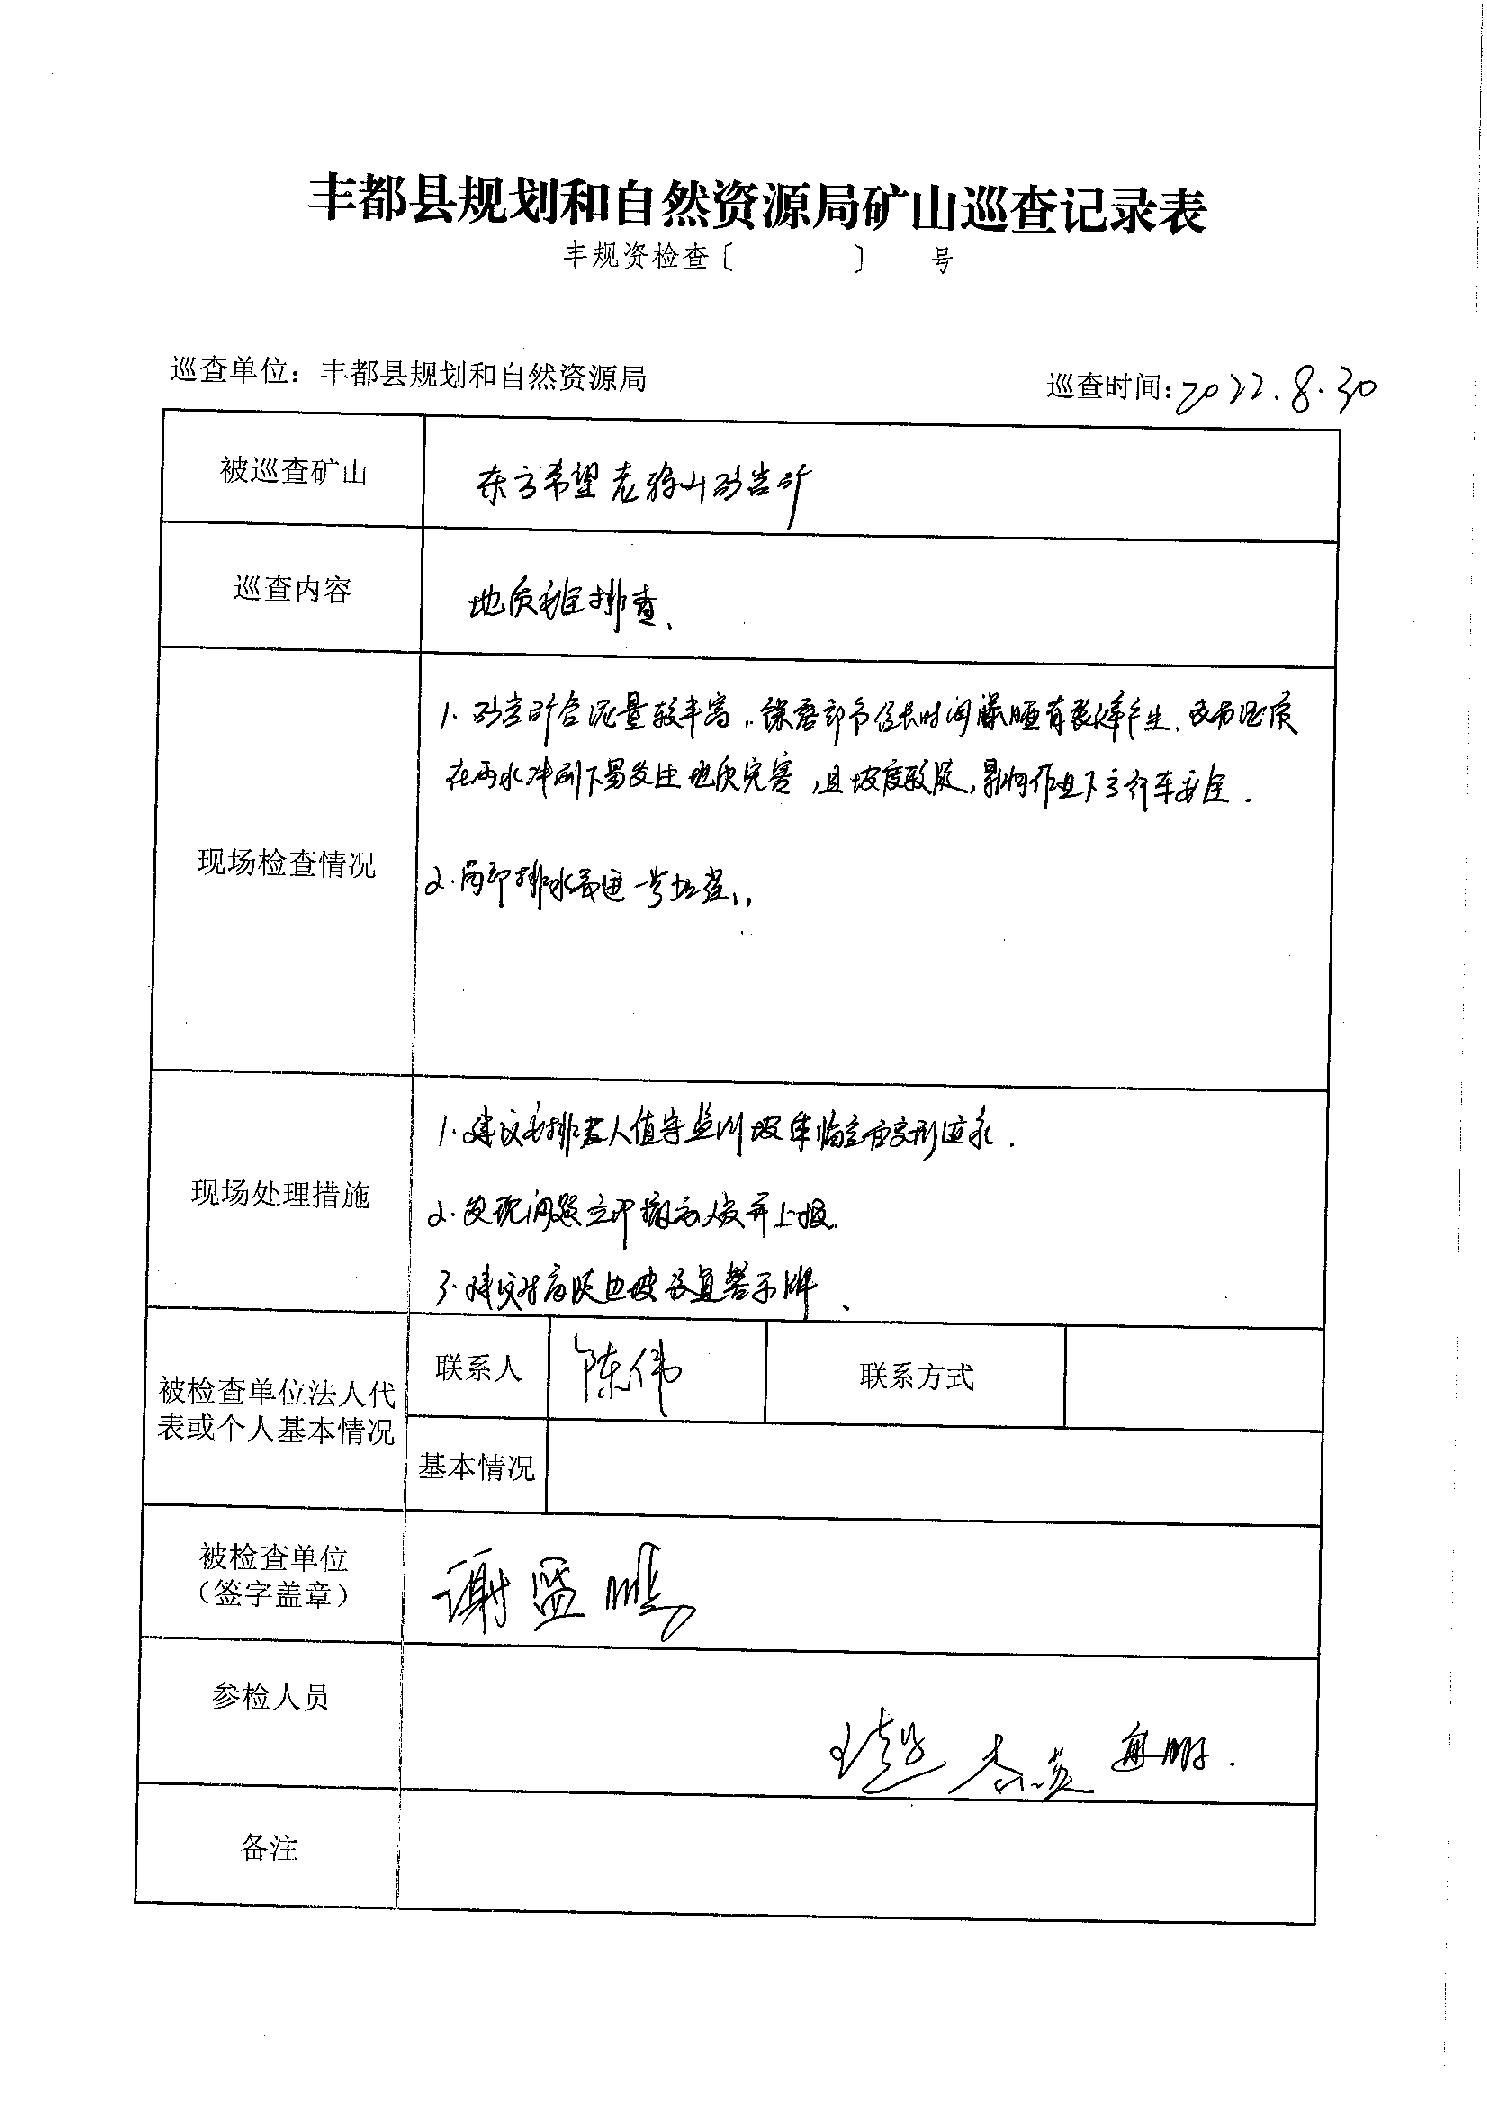 丰都县规划和自然资源局矿山巡查记录表
丰规资检查〔 〕 号
巡查单位：丰都县规划和自然资源局 巡查时间：2022.8.30
被巡查矿山 东方希望老鸦山砂岩矿
巡查内容 地质稳定排查、
1. 砂岩矿含泥量较丰富
在雨水冲刷下易发生地质灾害，且坡度较陡，影响作业下方行车安全.
现场检查情况
2. 排水
1. 建议安排专人值守监测坡体
现场处理措施
2. 发现问题立即撤离人员并上报.
3. 建议对高陡边坡设置警示牌、
联系人 陈伟 联系方式
被检查单位法人代
表或个人基本情况
基本情况
被检查单位
（签字盖章）
谢孟鹏
参检人员
备注